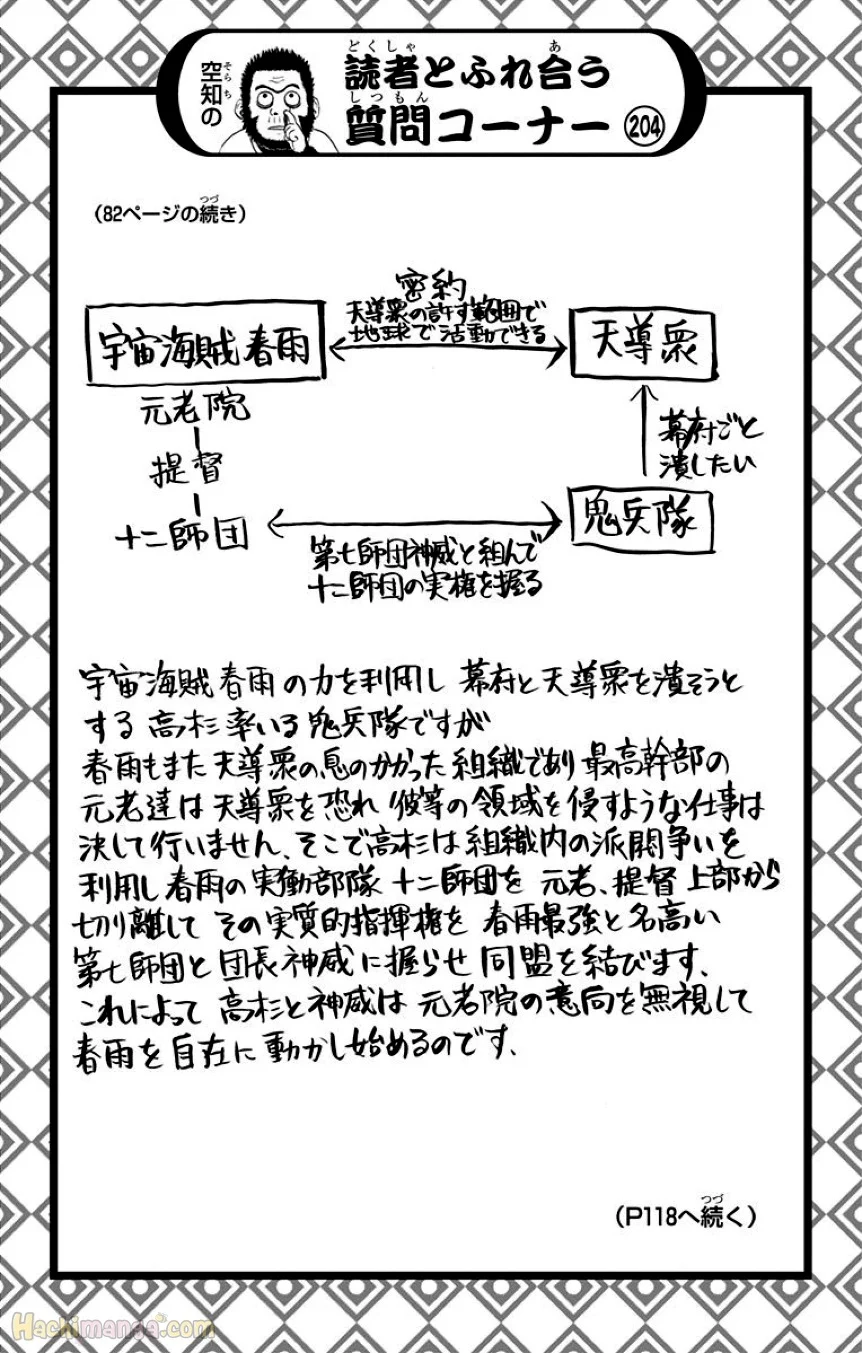 空知の
読者とふれ合う
質問コーナー 204
(82ページの続き)
密約
天導衆の許す範囲で
地球で活動できる
宇宙海賊春雨
天導衆
元老院
提督
十二師団
幕府ごと
潰したい
鬼兵隊
第七師団神威と組んで
十二師団の実権を握る
宇宙海賊春雨の力を利用し 幕府と天導衆を潰そうと
する 高杉率いる鬼兵隊ですが
春雨もまた 天導衆の息のかかった組織であり 最高幹部の
元老達は天導衆を恐れ 彼等の領域を侵すような仕事は
決して行いません、そこで高杉は組織内の派閥争いを
利用し春雨の実働部隊 十二師団を 元老、提督 上部から
切り離して その実質的指揮権を 春雨最強と名高い
第七師団と団長神威に握らせ 同盟を結びます、
これによって 高杉と神威は 元老院の意向を無視して
春雨を自在に動かし始めるのです、
(P118へ続く)
Hachimanga.com